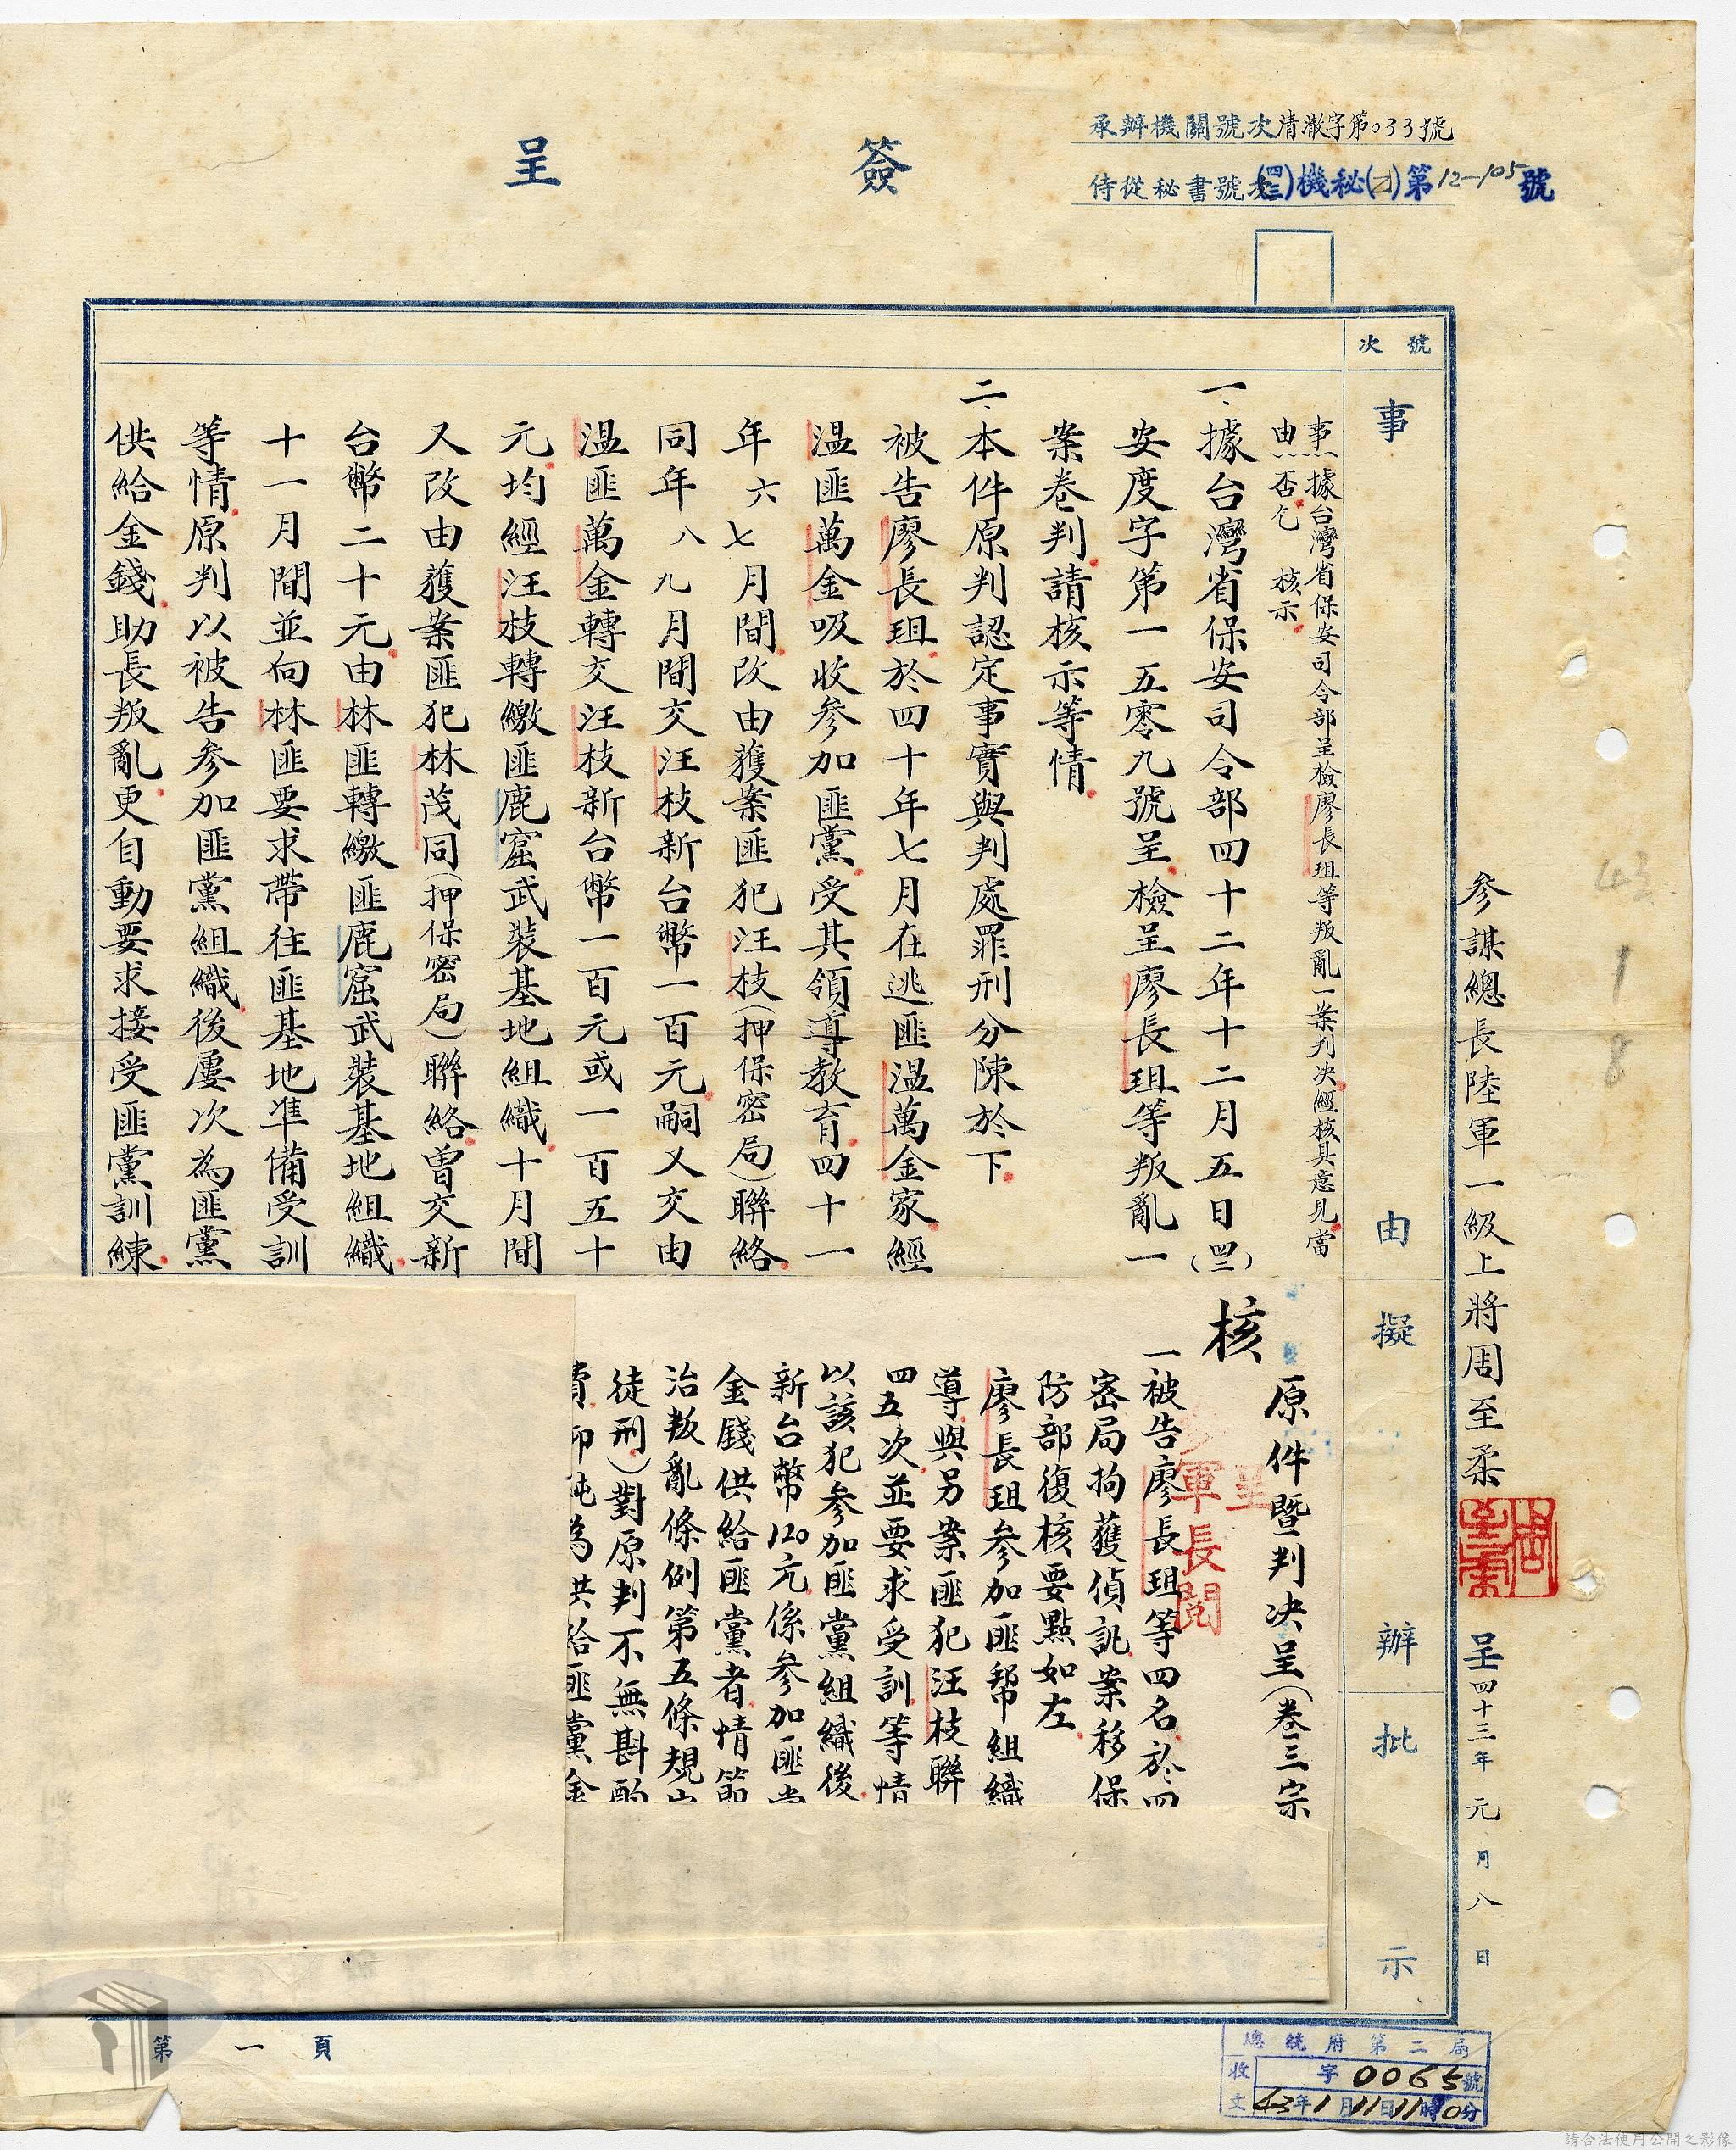 簽呈
承辦機關號次清澈字第033號
侍從秘書號次(四三)機秘(乙)第12-105號
參謀總長陸軍一級上將周至柔
周至柔
呈四十三年元月八日
43 1 8
號次
事由
擬辦
批示
事由:據台灣省保安司令部呈檢廖長珇等叛亂一案判決經核具意見當
否乞 核示
一、據台灣省保安司令部四十二年十二月五日(四二)
安度字第一五零九號呈檢呈廖長珇等叛亂一
案卷判請核示等情
二、本件原判認定事實與判處罪刑分陳於下
被告廖長珇於四十年七月在逃匪溫萬金家經
溫匪萬金吸收參加匪黨受其領導教育四十一
年六七月間改由獲案匪犯汪枝(押保密局)聯絡
同年八九月間交汪枝新台幣一百元嗣又交由
溫匪萬金轉交汪枝新台幣一百元或一百五十
元均經汪枝轉繳匪鹿窟武裝基地組織十月間
又改由獲案匪犯林茂同(押保密局)聯絡曾交新
台幣二十元由林匪轉繳匪鹿窟武裝基地組織
十一月間並向林匪要求帶往匪基地準備受訓
等情原判以被告參加匪黨組織後屢次為匪黨
供給金錢助長叛亂更自動要求接受匪黨訓練
原件暨判決呈(卷三宗
核
呈
軍長閱
一被告廖長珇等四名於四
密局拘獲偵訊案移保
防部復核要點如左
廖長珇參加匪幫組織
導與另案匪犯汪枝聯
四五次並要求受訓等情
以該犯參加匪黨組織後
新台幣120元係參加匪黨
金錢供給匪黨者情節
治叛亂條例第五條規
徒刑)對原判不無斟酌
為供給匪黨金
第一頁
總統府第二局
收文 字0065號
43年1月11日11時10分
請合法使用公開之影像